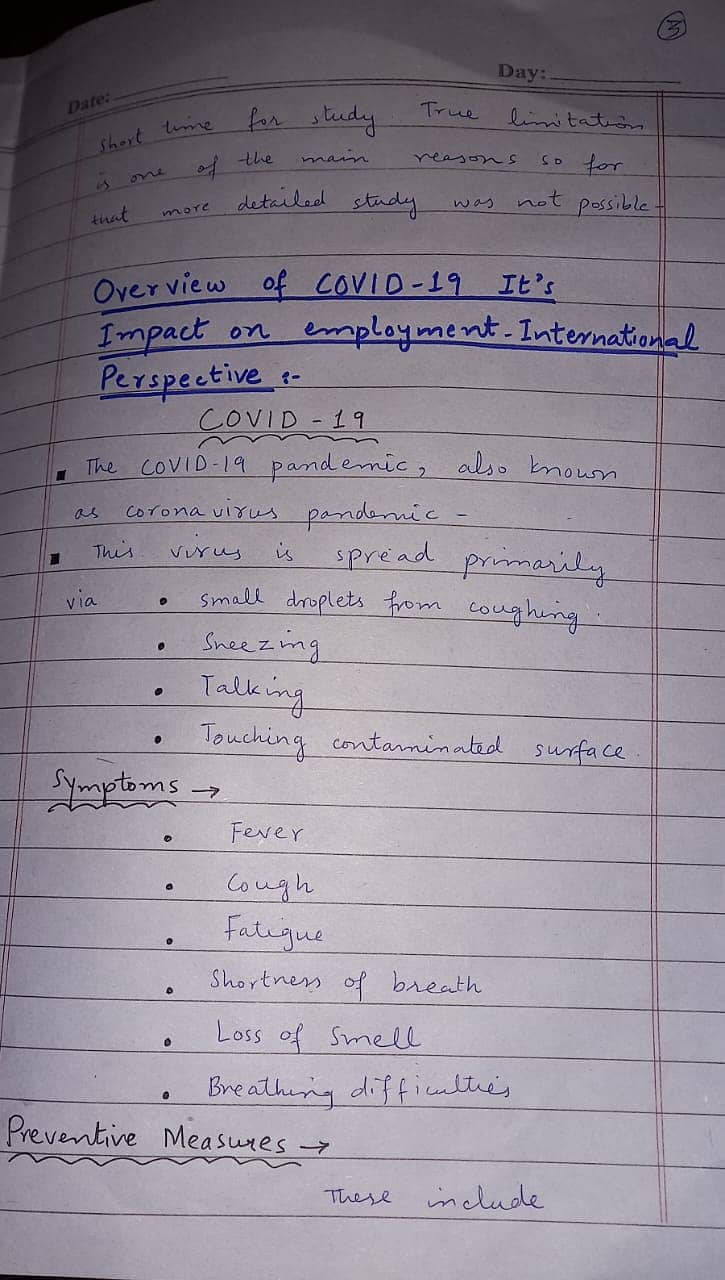 3
Day:
Date:
short time for study. True limitation
is one of the main reasons so for
that more detailed study was not possible-
Overview of COVID-19 It's
Impact on employment-International
Perspective :-
COVID-19
▪ The COVID-19 pandemic, also known
as corona virus pandemic -
▪ This virus is spread primarily
via • small droplets from coughing.
• Sneezing
• Talking
• Touching contaminated surface.
Symptoms →
• Fever
• Cough
• Fatigue
• Shortness of breath
• Loss of Smell
• Breathing difficulties
Preventive Measures →
These include